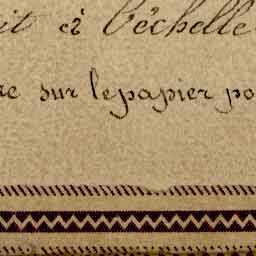 it à l'échelle
re sur le papier po